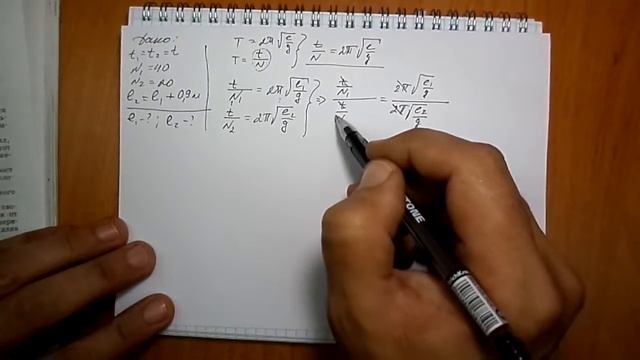 Дано:
t₁=t₂=t
N₁=40
N₂=20
ℓ₂=ℓ₁+0,9м
ℓ₁-? ; ℓ₂-?
T = 2π√(ℓ/g)
T = t/N
t/N = 2π√(ℓ/g)
t/N₁ = 2π√(ℓ₁/g)
t/N₂ = 2π√(ℓ₂/g)
⇒ (t/N₁)/(t/ = 2π√(ℓ₁/g)/2π√(ℓ₂/g)
TONE